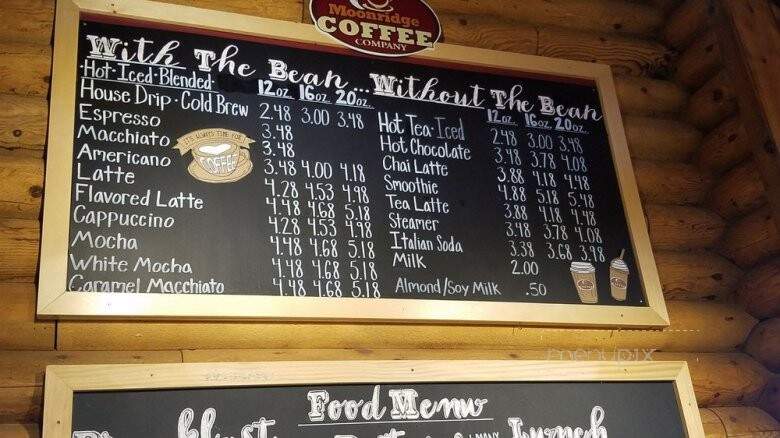 Moonridge
COFFEE
COMPANY
With The Bean... Without The Bean
·Hot·Iced·Blended· 12oz. 16oz. 20oz.
House Drip·Cold Brew 2.48 3.00 3.48
Espresso 3.48
Macchiato 3.48
Americano 3.48 4.00 4.18
Latte 4.28 4.53 4.98
Flavored Latte 4.48 4.68 5.18
Cappuccino 4.28 4.53 4.98
Mocha 4.48 4.68 5.18
White Mocha 4.48 4.68 5.18
Caramel Macchiato 4.48 4.68 5.18
IT'S ALWAYS TIME FOR
COFFEE
12oz. 16oz. 20oz.
Hot Tea·Iced 2.48 3.00 3.48
Hot Chocolate 3.48 3.78 4.08
Chai Latte 3.88 4.18 4.48
Smoothie 4.88 5.18 5.48
Tea Latte 3.88 4.18 4.48
Steamer 3.48 3.78 4.08
Italian Soda 3.38 3.68 3.98
Milk 2.00
Almond/Soy Milk .50
menupix
Food Menu
Lunch